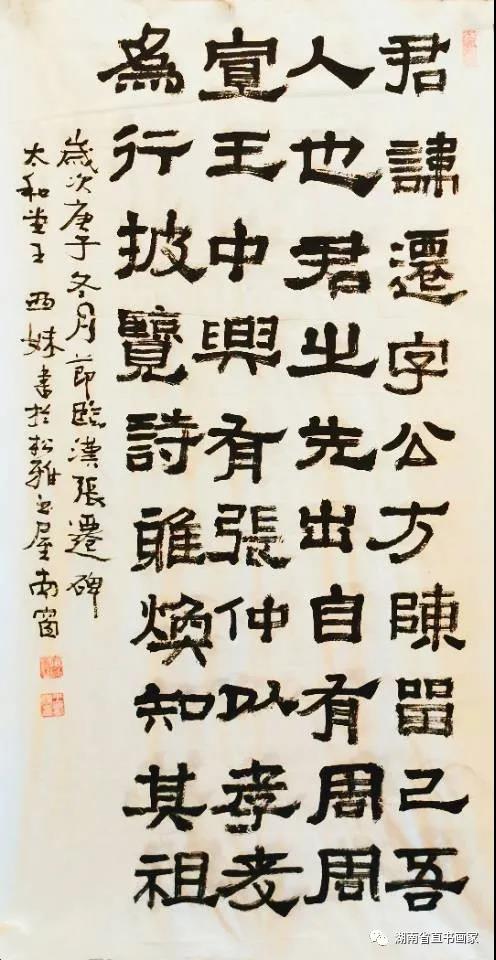 君諱遷字公方陳留己吾
人也君之先出自有周周
宣王中興有張仲以孝友
為行披覽詩雅煥知其祖
歲次庚子冬月節臨漢張遷碑
太和堂王西妹書於松雅書屋南窗
湖南省直书画家